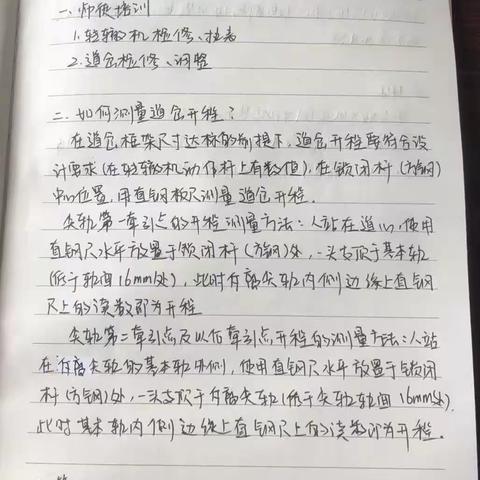 一、师徒培训
1.转辙机检修、拉表
2.道岔检修、调整
二、如何测量道岔开程？
在道岔框架尺寸达标的前提下，道岔开程要符合设
计要求(在转辙机动作杆上有数值)，在锁闭杆(方钢)
中心位置，用直钢板尺测量道岔开程。
尖轨第一牵引点的开程测量方法：人站在道心，使用
直钢尺水平放置于锁闭杆(方钢)处，一头支顶于基本轨
(低于轨面16mm处)，此时斥离尖轨内侧边缘上直钢
尺上的读数即为开程
尖轨第二牵引点及以后牵引点开程的测量方法：人站
在斥离尖轨的基本轨外侧，使用直钢尺水平放置于锁闭
杆(方钢)处，一头支顶于斥离尖轨(低于尖轨轨面16mm处)，
此时基本轨内侧边缘上直钢尺上的读数即为开程。